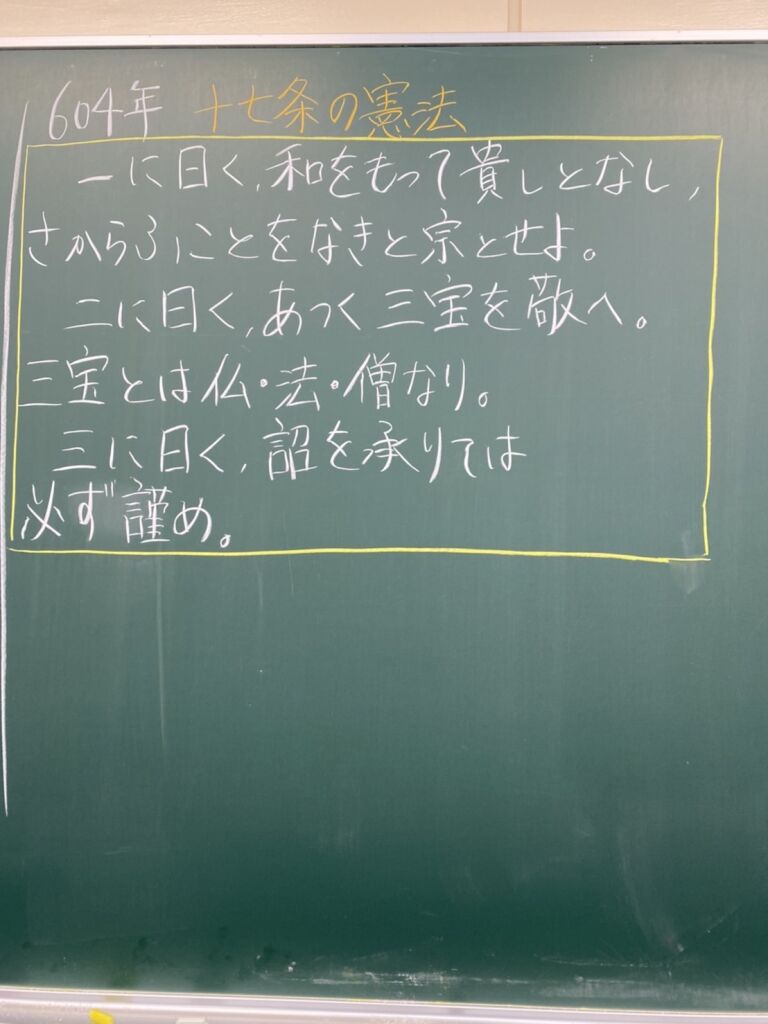 604年 十七条の憲法
一に曰く,和をもって貴しとなし,
さからふことをなきと宗とせよ。
二に曰く,あつく三宝を敬へ。
三宝とは仏・法・僧なり。
三に曰く,詔を承りては
必ず謹め。